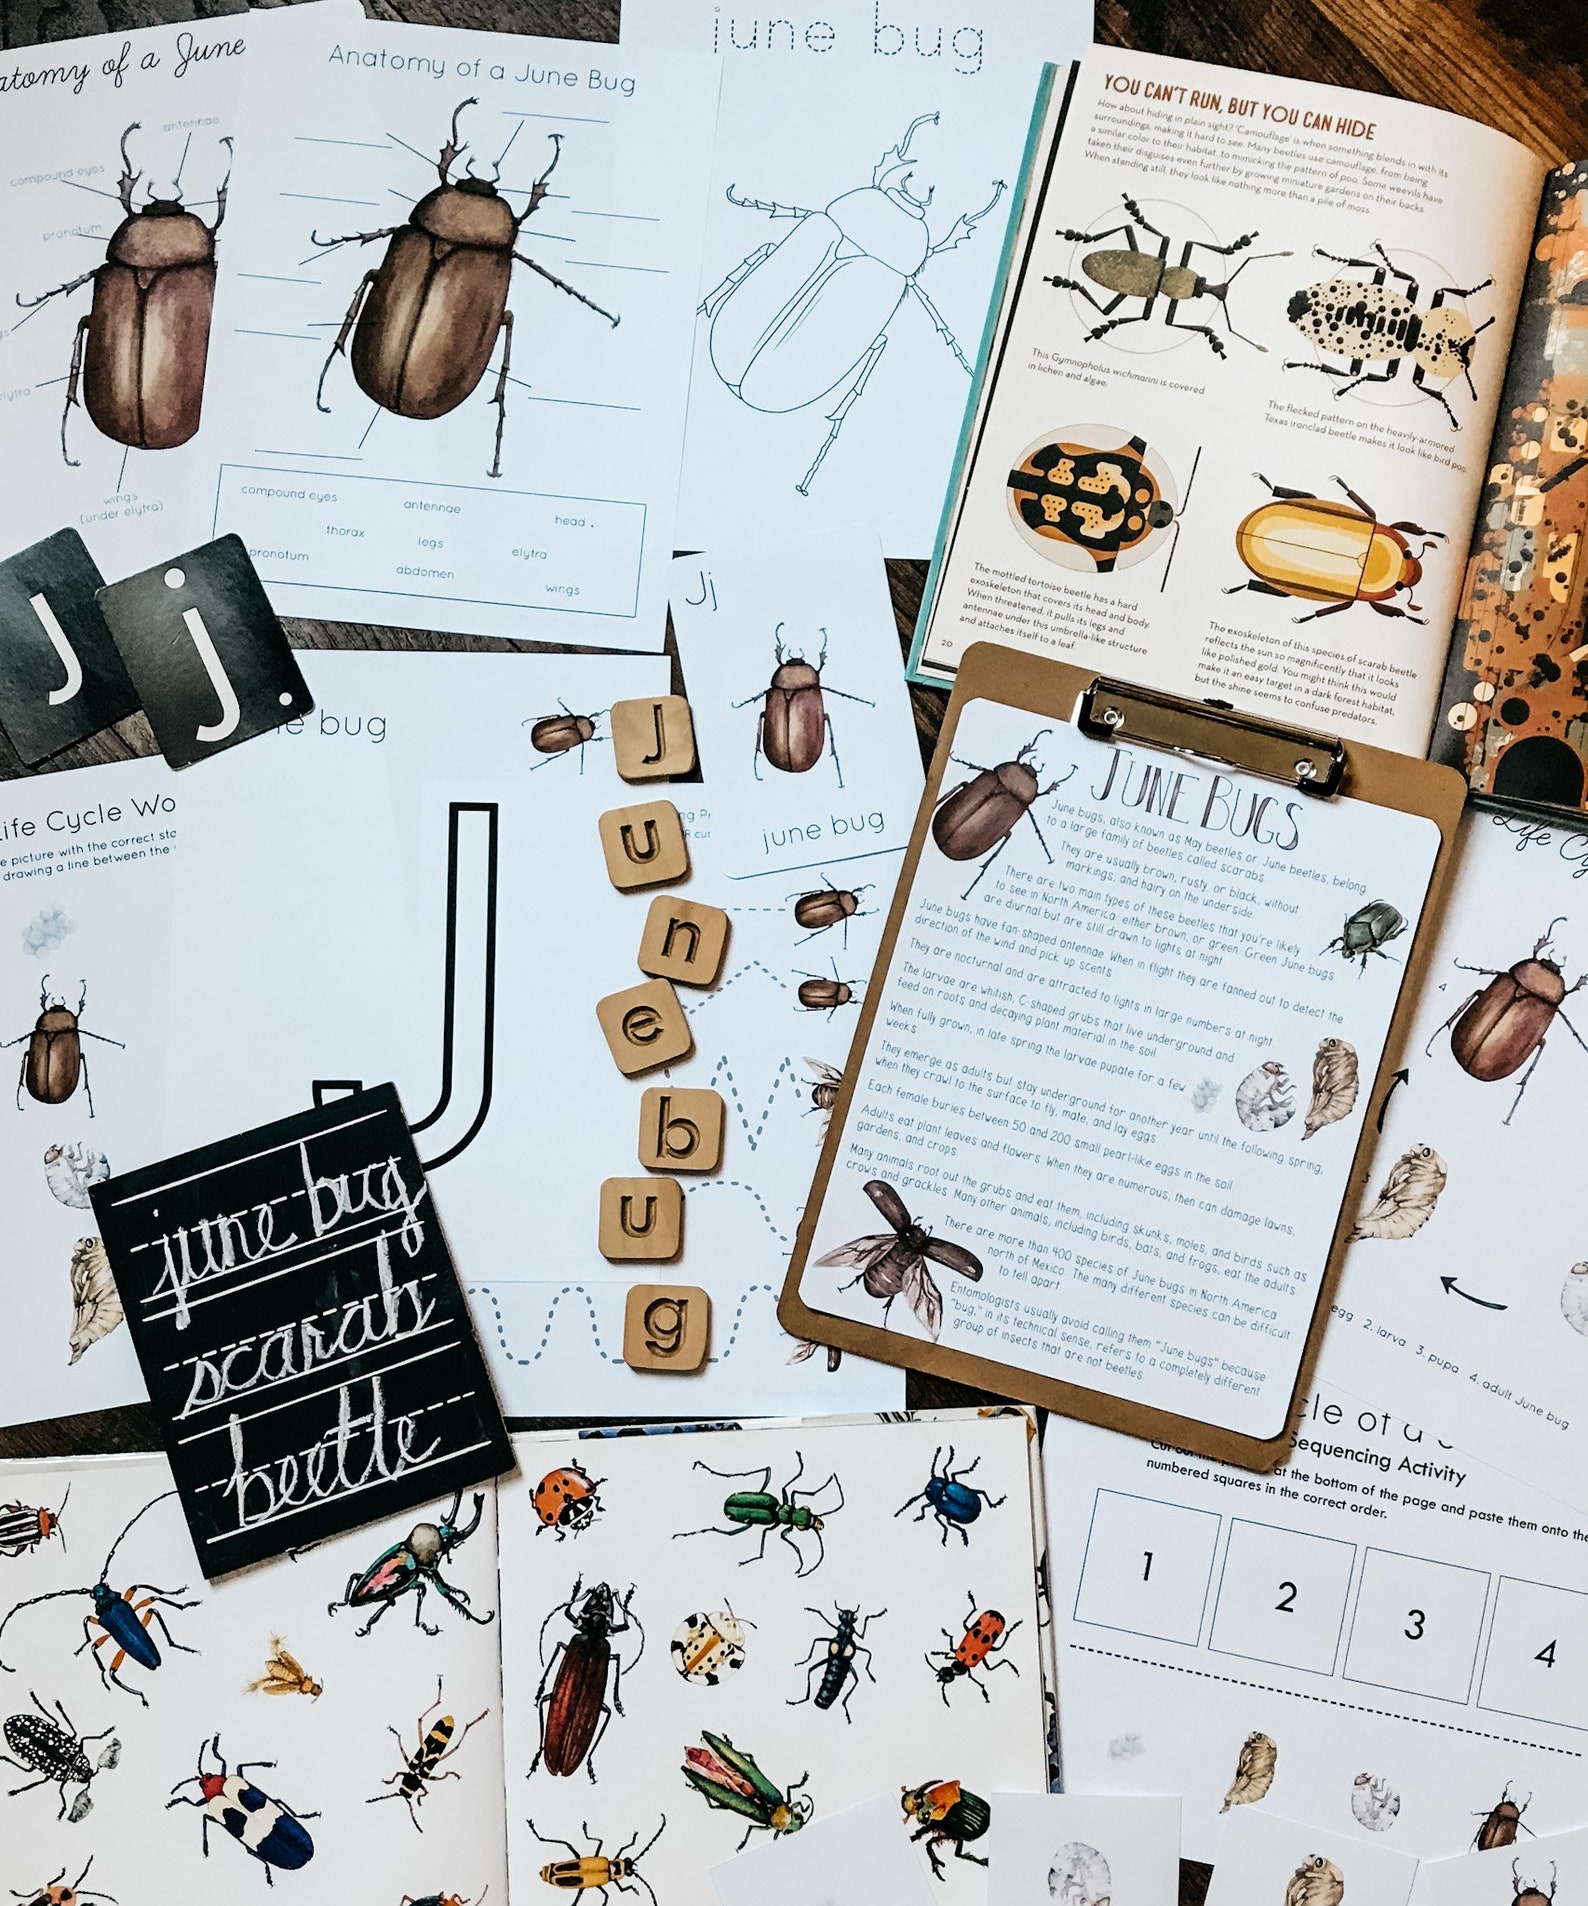 Anatomy of a June Bug
antennae
compound eyes
pronotum
elytra
wings
(under elytra)
compound eyes
antennae
head
thorax
legs
elytra
pronotum
abdomen
wings
june bug
YOU CAN'T RUN, BUT YOU CAN HIDE
How about hiding in plain sight? 'Camouflage' is when something blends in with its
surroundings, making it hard to see. Many beetles use camouflage, from being
a similar color to their habitat, to mimicking the pattern of poo. Some weevils have
taken their disguises even further by growing miniature gardens on their backs.
When standing still, they look like nothing more than a pile of moss.
This Gymnopholus wichmanni is covered
in lichen and algae.
The flecked pattern on the heavily armored
Texas ironclad beetle makes it look like bird poo.
The mottled tortoise beetle has a hard
exoskeleton that covers its head and body.
When threatened, it pulls its legs and
antennae under this umbrella-like structure
and attaches itself to a leaf.
The exoskeleton of this species of scarab beetle
reflects the sun so magnificently that it looks
like polished gold. You might think this would
make it an easy target in a dark forest habitat,
but the shine seems to confuse predators.
20
J
j.
Jj
june bug
e bug
j
u
n
e
b
u
g
Life Cycle Wo
e picture with the correct sta
drawing a line between the
june bug
scarab
beetle
JUNE BUGS
June bugs, also known as May beetles or June beetles, belong
to a large family of beetles called scarabs.
They are usually brown, rusty, or black, without
markings, and hairy on the underside.
There are two main types of these beetles that you're likely
to see in North America: either brown, or green. Green June bugs
are diurnal but are still drawn to lights at night.
June bugs have fan-shaped antennae. When in flight they are fanned out to detect the
direction of the wind and pick up scents.
They are nocturnal and are attracted to lights in large numbers at night.
The larvae are whitish, C-shaped grubs that live underground and
feed on roots and decaying plant material in the soil.
When fully grown, in late spring the larvae pupate for a few
weeks.
They emerge as adults but stay underground for another year until the following spring,
when they crawl to the surface to fly, mate, and lay eggs.
Each female buries between 50 and 200 small pearl-like eggs in the soil.
Adults eat plant leaves and flowers. When they are numerous, then can damage lawns,
gardens, and crops.
Many animals root out the grubs and eat them, including skunks, moles, and birds such as
crows and grackles. Many other animals, including birds, bats, and frogs, eat the adults.
There are more than 400 species of June bugs in North America
north of Mexico. The many different species can be difficult
to tell apart.
Entomologists usually avoid calling them "June bugs" because
"bug," in its technical sense, refers to a completely different
group of insects that are not beetles.
Life Cy
4
3
egg 2. larva 3. pupa 4. adult June bug
Sequencing Activity
at the bottom of the page and paste them onto the
numbered squares in the correct order.
1
2
3
4